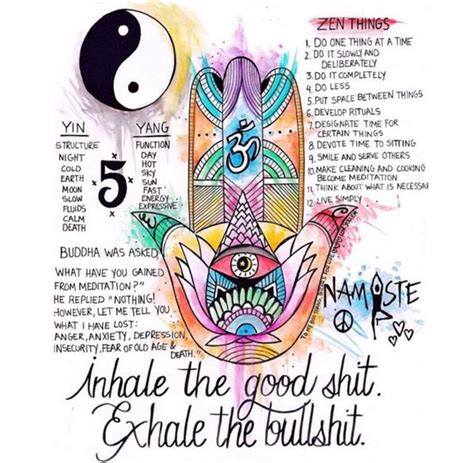 ZEN THINGS
1. DO ONE THING AT A TIME
2. DO IT SLOWLY AND
DELIBERATELY
3. DO IT COMPLETELY
4. DO LESS
5. PUT SPACE BETWEEN THINGS
6. DEVELOP RITUALS
7. DESIGNATE TIME FOR
CERTAIN THINGS
8. DEVOTE TIME TO SITTING
9. SMILE AND SERVE OTHERS
10. MAKE CLEANING AND COOKING
BECOME MEDITATION
11. THINK ABOUT WHAT IS NECESSAI
12. LIVE SIMPLY
YIN
STRUCTURE
NIGHT
COLD
EARTH
MOON
SLOW
FLUIDS
CALM
DEATH
5
YANG
FUNCTION
DAY
HOT
SKY
SUN
FAST
ENERGY
EXPRESSIVE
ॐ
BUDDHA WAS ASKED,
WHAT HAVE YOU GAINED
FROM MEDITATION?"
HE REPLIED "NOTHING!
HOWEVER, LET ME TELL YOU
WHAT I HAVE LOST:
ANGER, ANXIETY, DEPRESSION,
INSECURITY, FEAR OF OLD AGE &
DEATH."
NAMASTE
Inhale the good shit.
Exhale the bullshit.